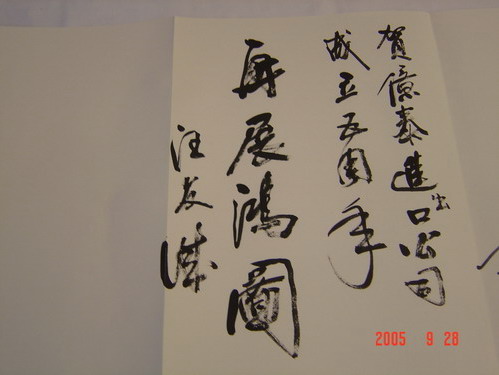 賀億泰進出口公司
成立五周年
再展鴻圖
汪友
2005 9 28